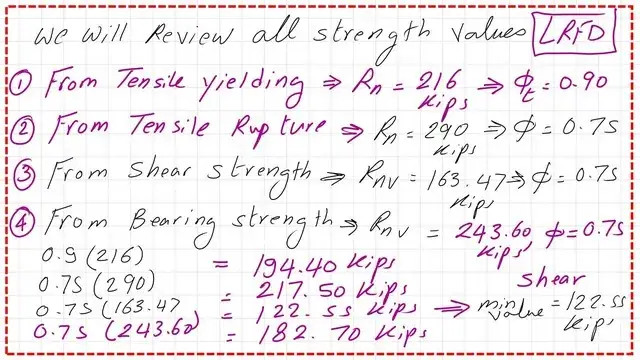 We will Review all strength values LRFD
① From Tensile yielding ⇒ Rn = 216 Kips ⇒ Φt = 0.90
② From Tensile Rupture ⇒ Rn = 290 Kips ⇒ Φ = 0.75
③ From Shear strength ⇒ Rnv = 163.47 Kips ⇒ Φ = 0.75
④ From Bearing strength ⇒ Rnv = 243.60 Kips Φ = 0.75
0.9 (216) = 194.40 Kips
0.75 (290) = 217.50 Kips
0.75 (163.47 = 122.55 Kips ⇒ shear min value = 122.55 Kips
0.75 (243.60) = 182.70 Kips